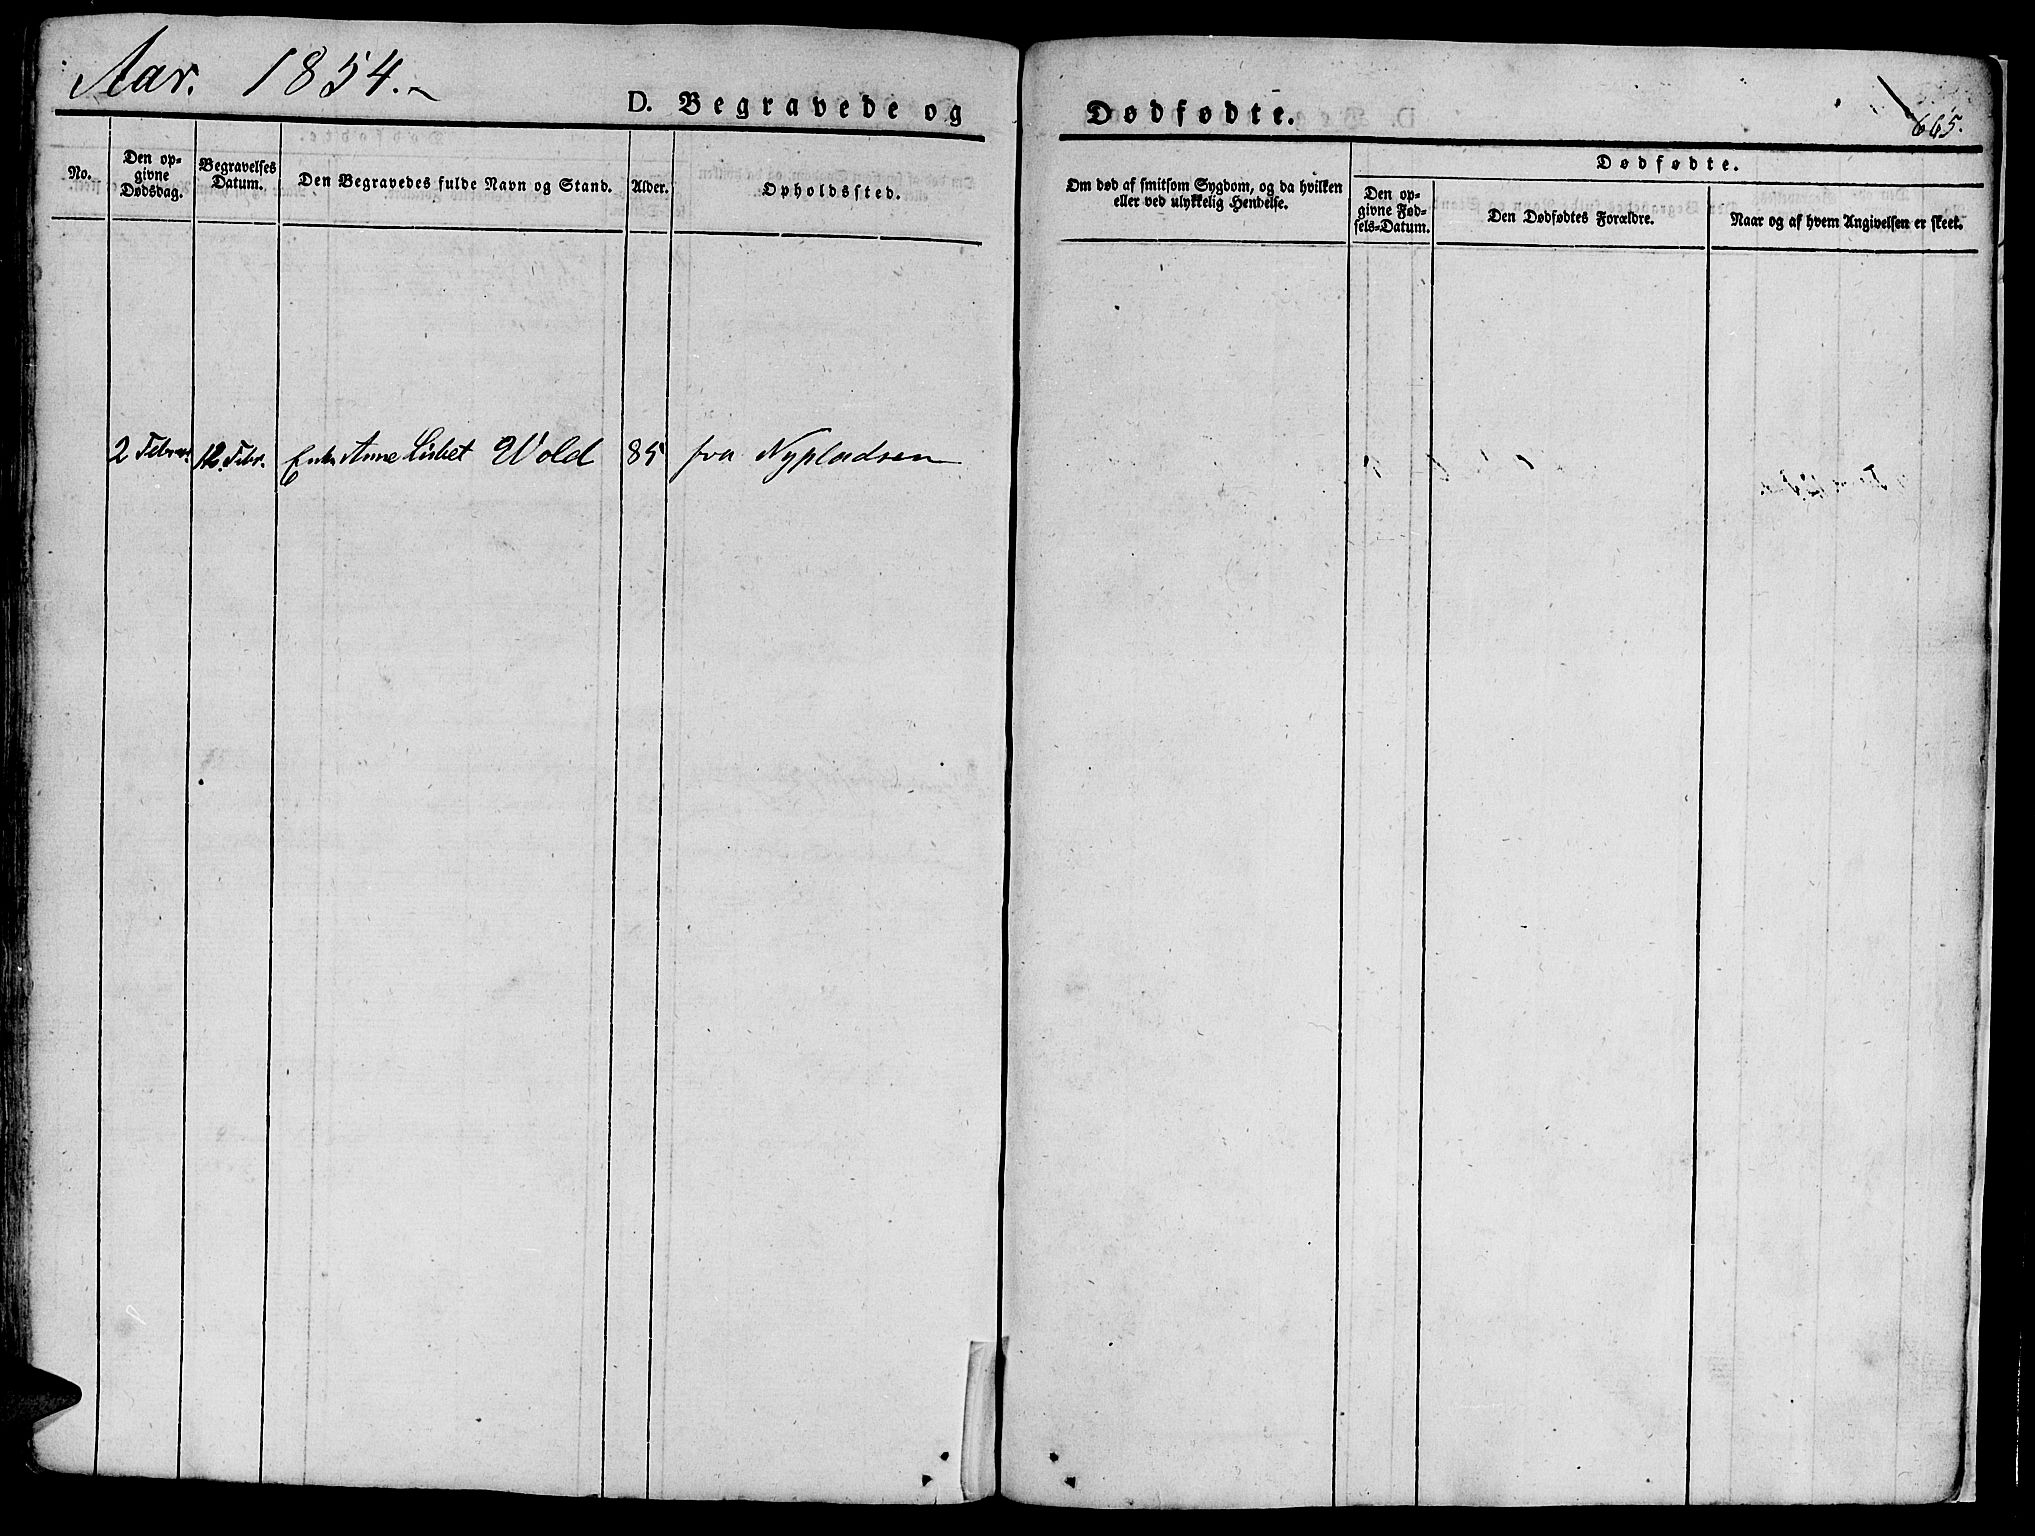 Aar. 1854.
D. Begravede og Dødfødte.
665.
No.
Den op-
givne
Dødsdag.
Begravelses
Datum.
Den Begravedes fulde Navn og Stand.
Alder.
Opholdssted.
Om død af smitsom Sygdom, og da hvilken
eller ved ulykkelig Hendelse.
Dødfødte.
Den op-
givne Fød-
sels-Datum.
Den Dødfødtes Forældre.
Naar og af hvem Angivelsen er skeet.
2 Februar 12. Febr. Enke Anne Lisbet Wold 85 fra Nypladsen